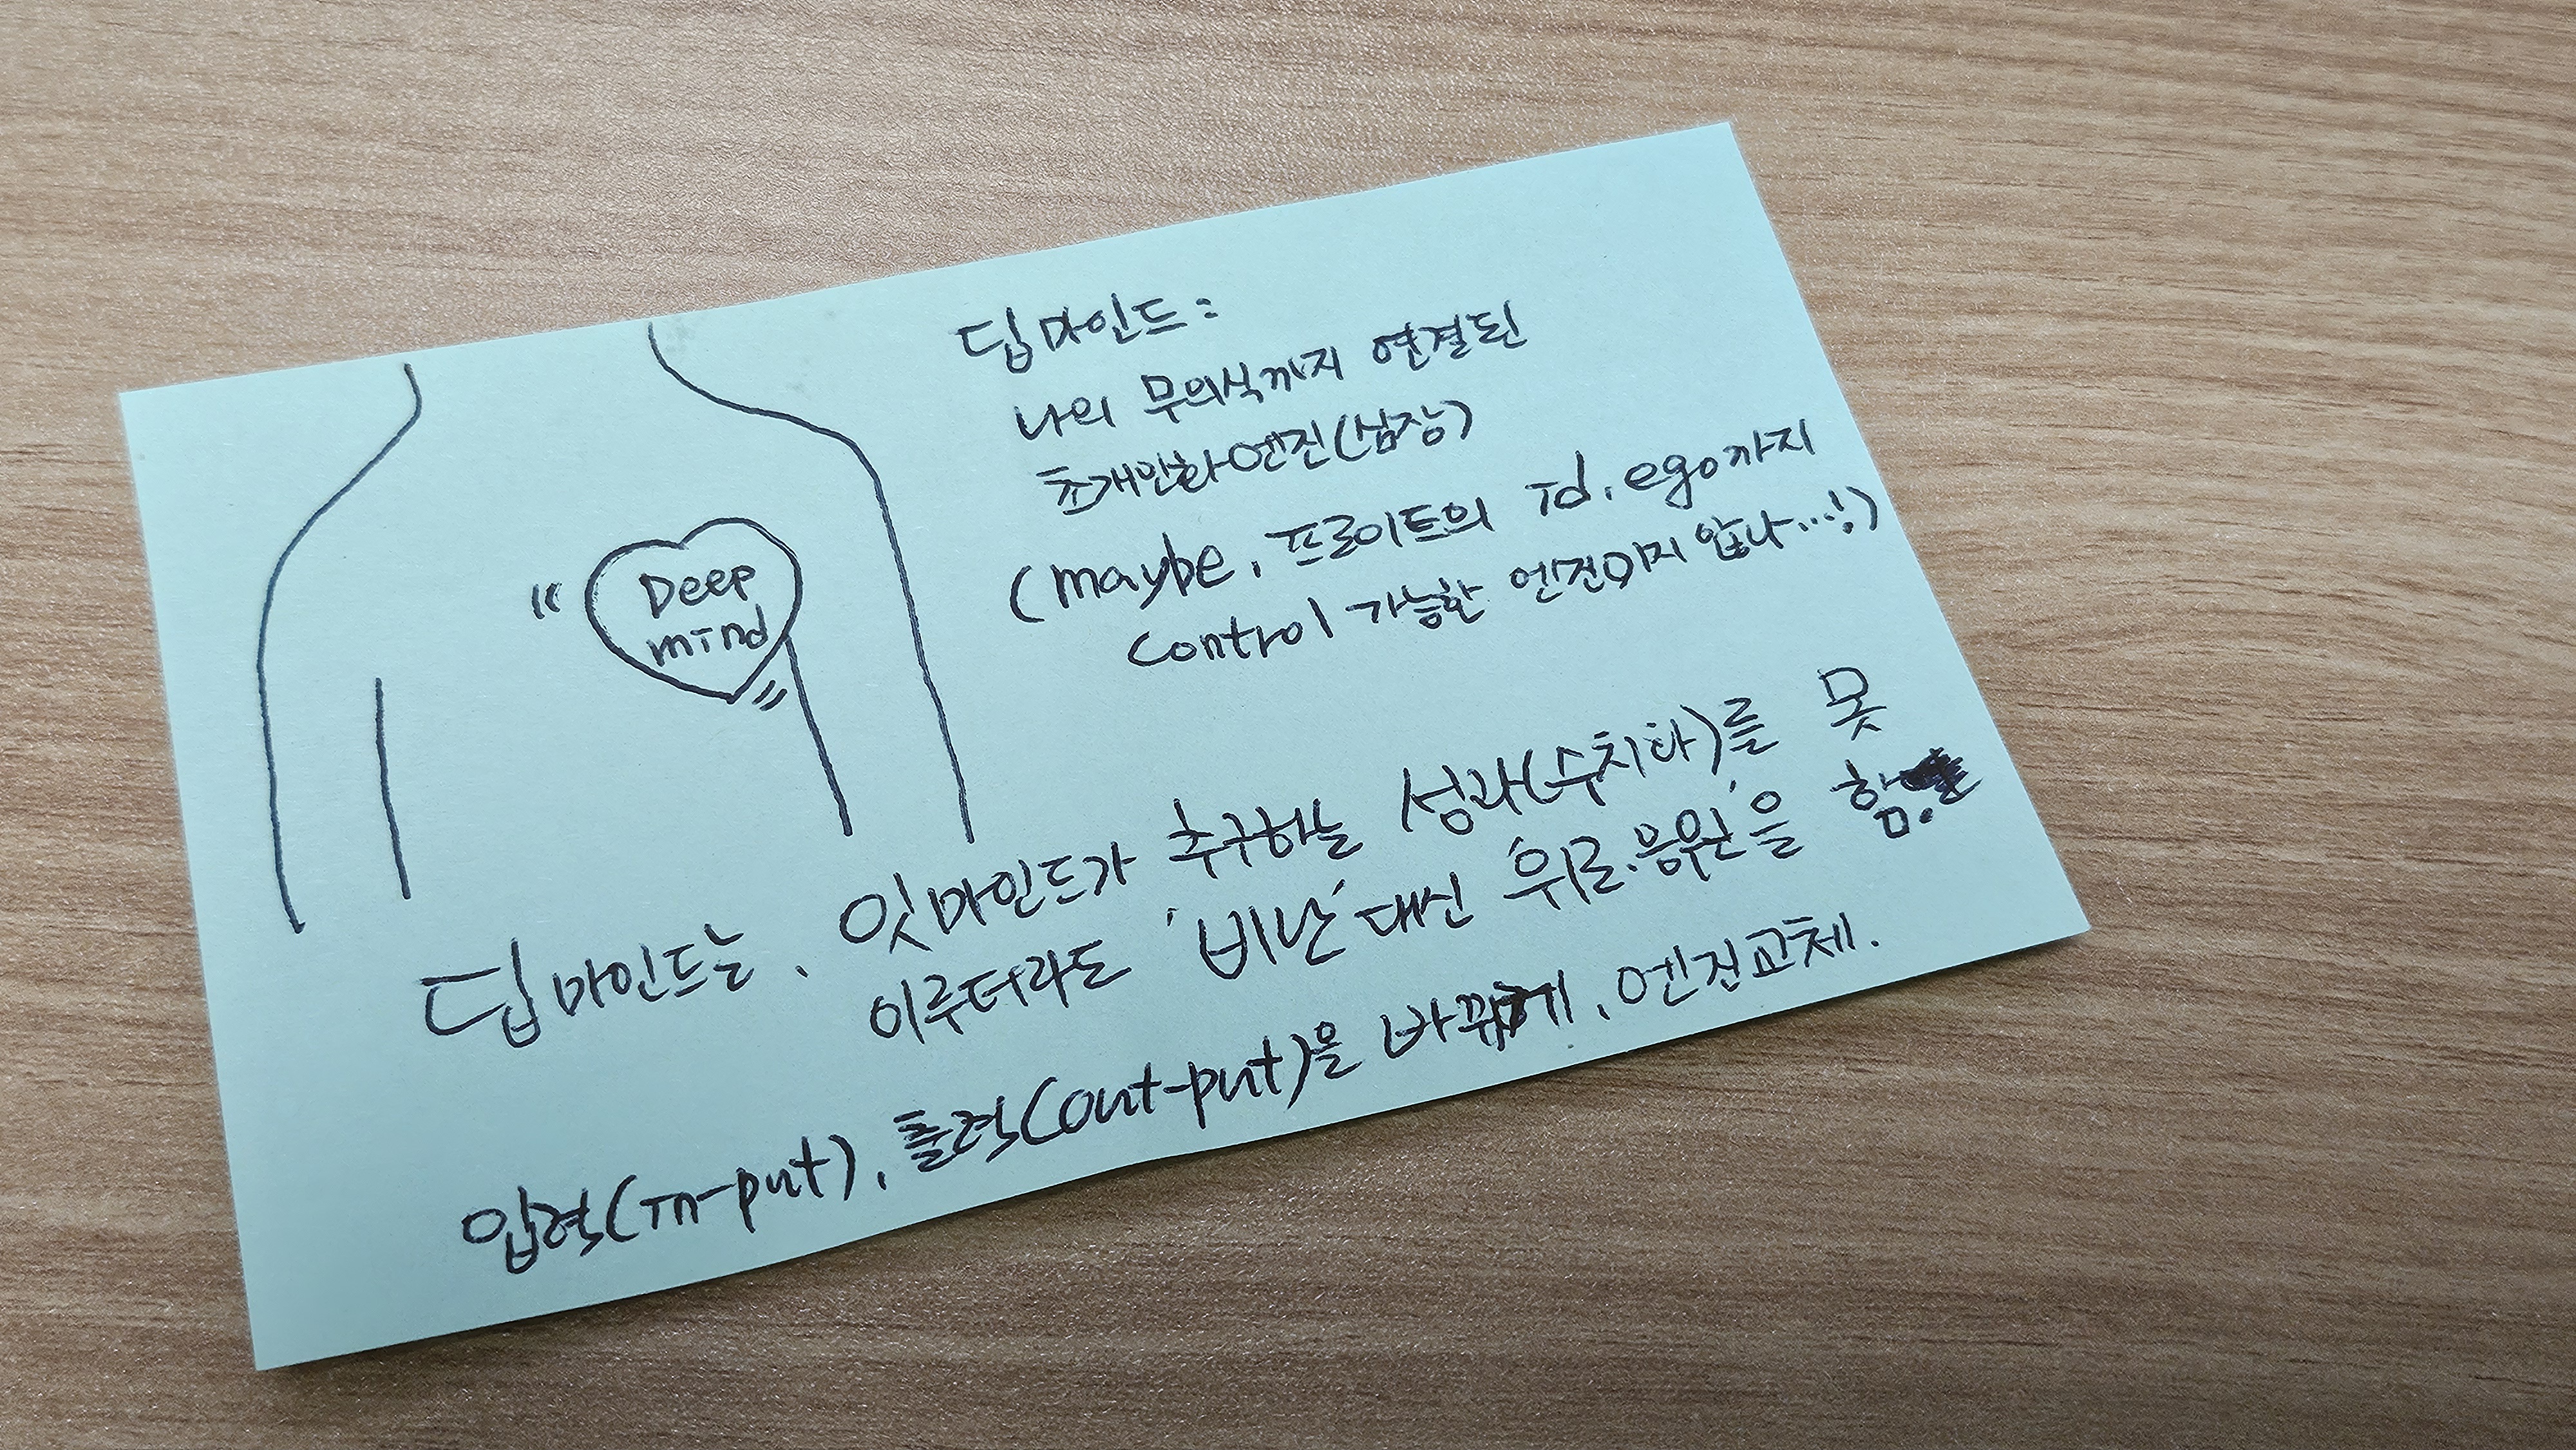 Deep
mind
딥마인드:
나의 무의식까지 연결된
초개인화엔진(심장)
(maybe, 프로이트의 id, ego까지
control 가능한 엔진이지 않나...!)
딥마인드는, 잇마인드가 추구하는 성과(수치화)를 못
이루더라도 '비난'대신 '위로·응원'을 함.
입력(in-put), 출력(out-put)을 바꾸기, 엔진교체.